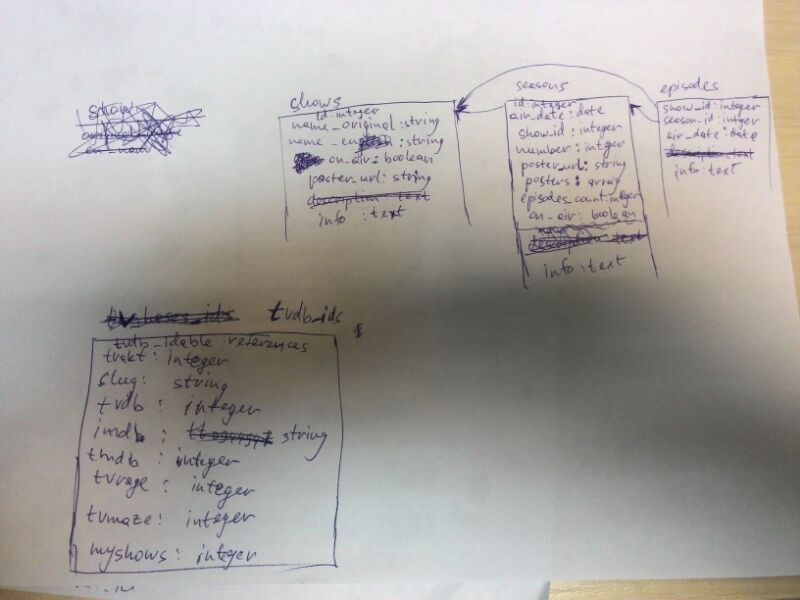 shows
id:integer
name_original:string
name_en :string
on_air:boolean
poster_url:string
description:text
info :text
seasons
id:integer
air_date:date
show_id:integer
number:integer
poster_url:string
posters:array
episodes_count:integer
on_air:boolean
description:text
info:text
episodes
show_id:integer
season_id:integer
air_date:date
description:text
info:text
tvdb_ids
tvdb_idable references
trakt: integer
slug: string
tvdb: integer
imdb: string
tmdb: integer
tvrage: integer
tvmaze: integer
myshows: integer